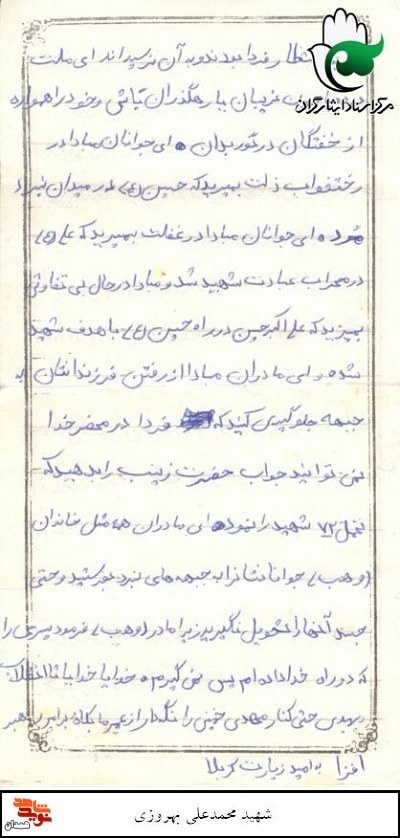 انتظار فردا بودند و به آن نرسیدند ای ملت
غریبان یا رهگذران تباشی و خود را همواره
از خفتگان در گور بدان ه ای جوانان مبادا در
رختخواب ذلت بمیرید که حسین (ع) در میدان نبرد
مُرد ه ای جوانان مبادا در غفلت بمیرید که علی (ع)
در محراب عبادت شهید شد و مبادا در حال بی تفاوتی
بمیرید که علی اکبر حسین در راه حسین (ع) با هدف شهید
شده و ای مادران مبادا از رفتن فرزندانتان به
جبهه جلوگیری کنید که فردا در محضر خدا
نمی توانید جواب حضرت زینب را بدهید که
تحمل ۷۲ شهید را نمود ه ای مادران همه مثل خاندان
(وهب) جوانانتانرا به جبهه های نبرد بفرستید و حتی
جسد آنها را تحویل نگیرید زیرا مادر (وهب) فرمود سری را
که در راه خدا داده ام پس نمی گیرم ه خدایا خدایا تا انقلاب
مهدی حتی کنار مهدی خمینی را نگهدار از عمر ما بکاه برای رهبر
افزا به امید زیارت کربلا
مرکز اسناد ایثارگران
شاهد
نوید
همدان
شهید محمدعلی بهروزی